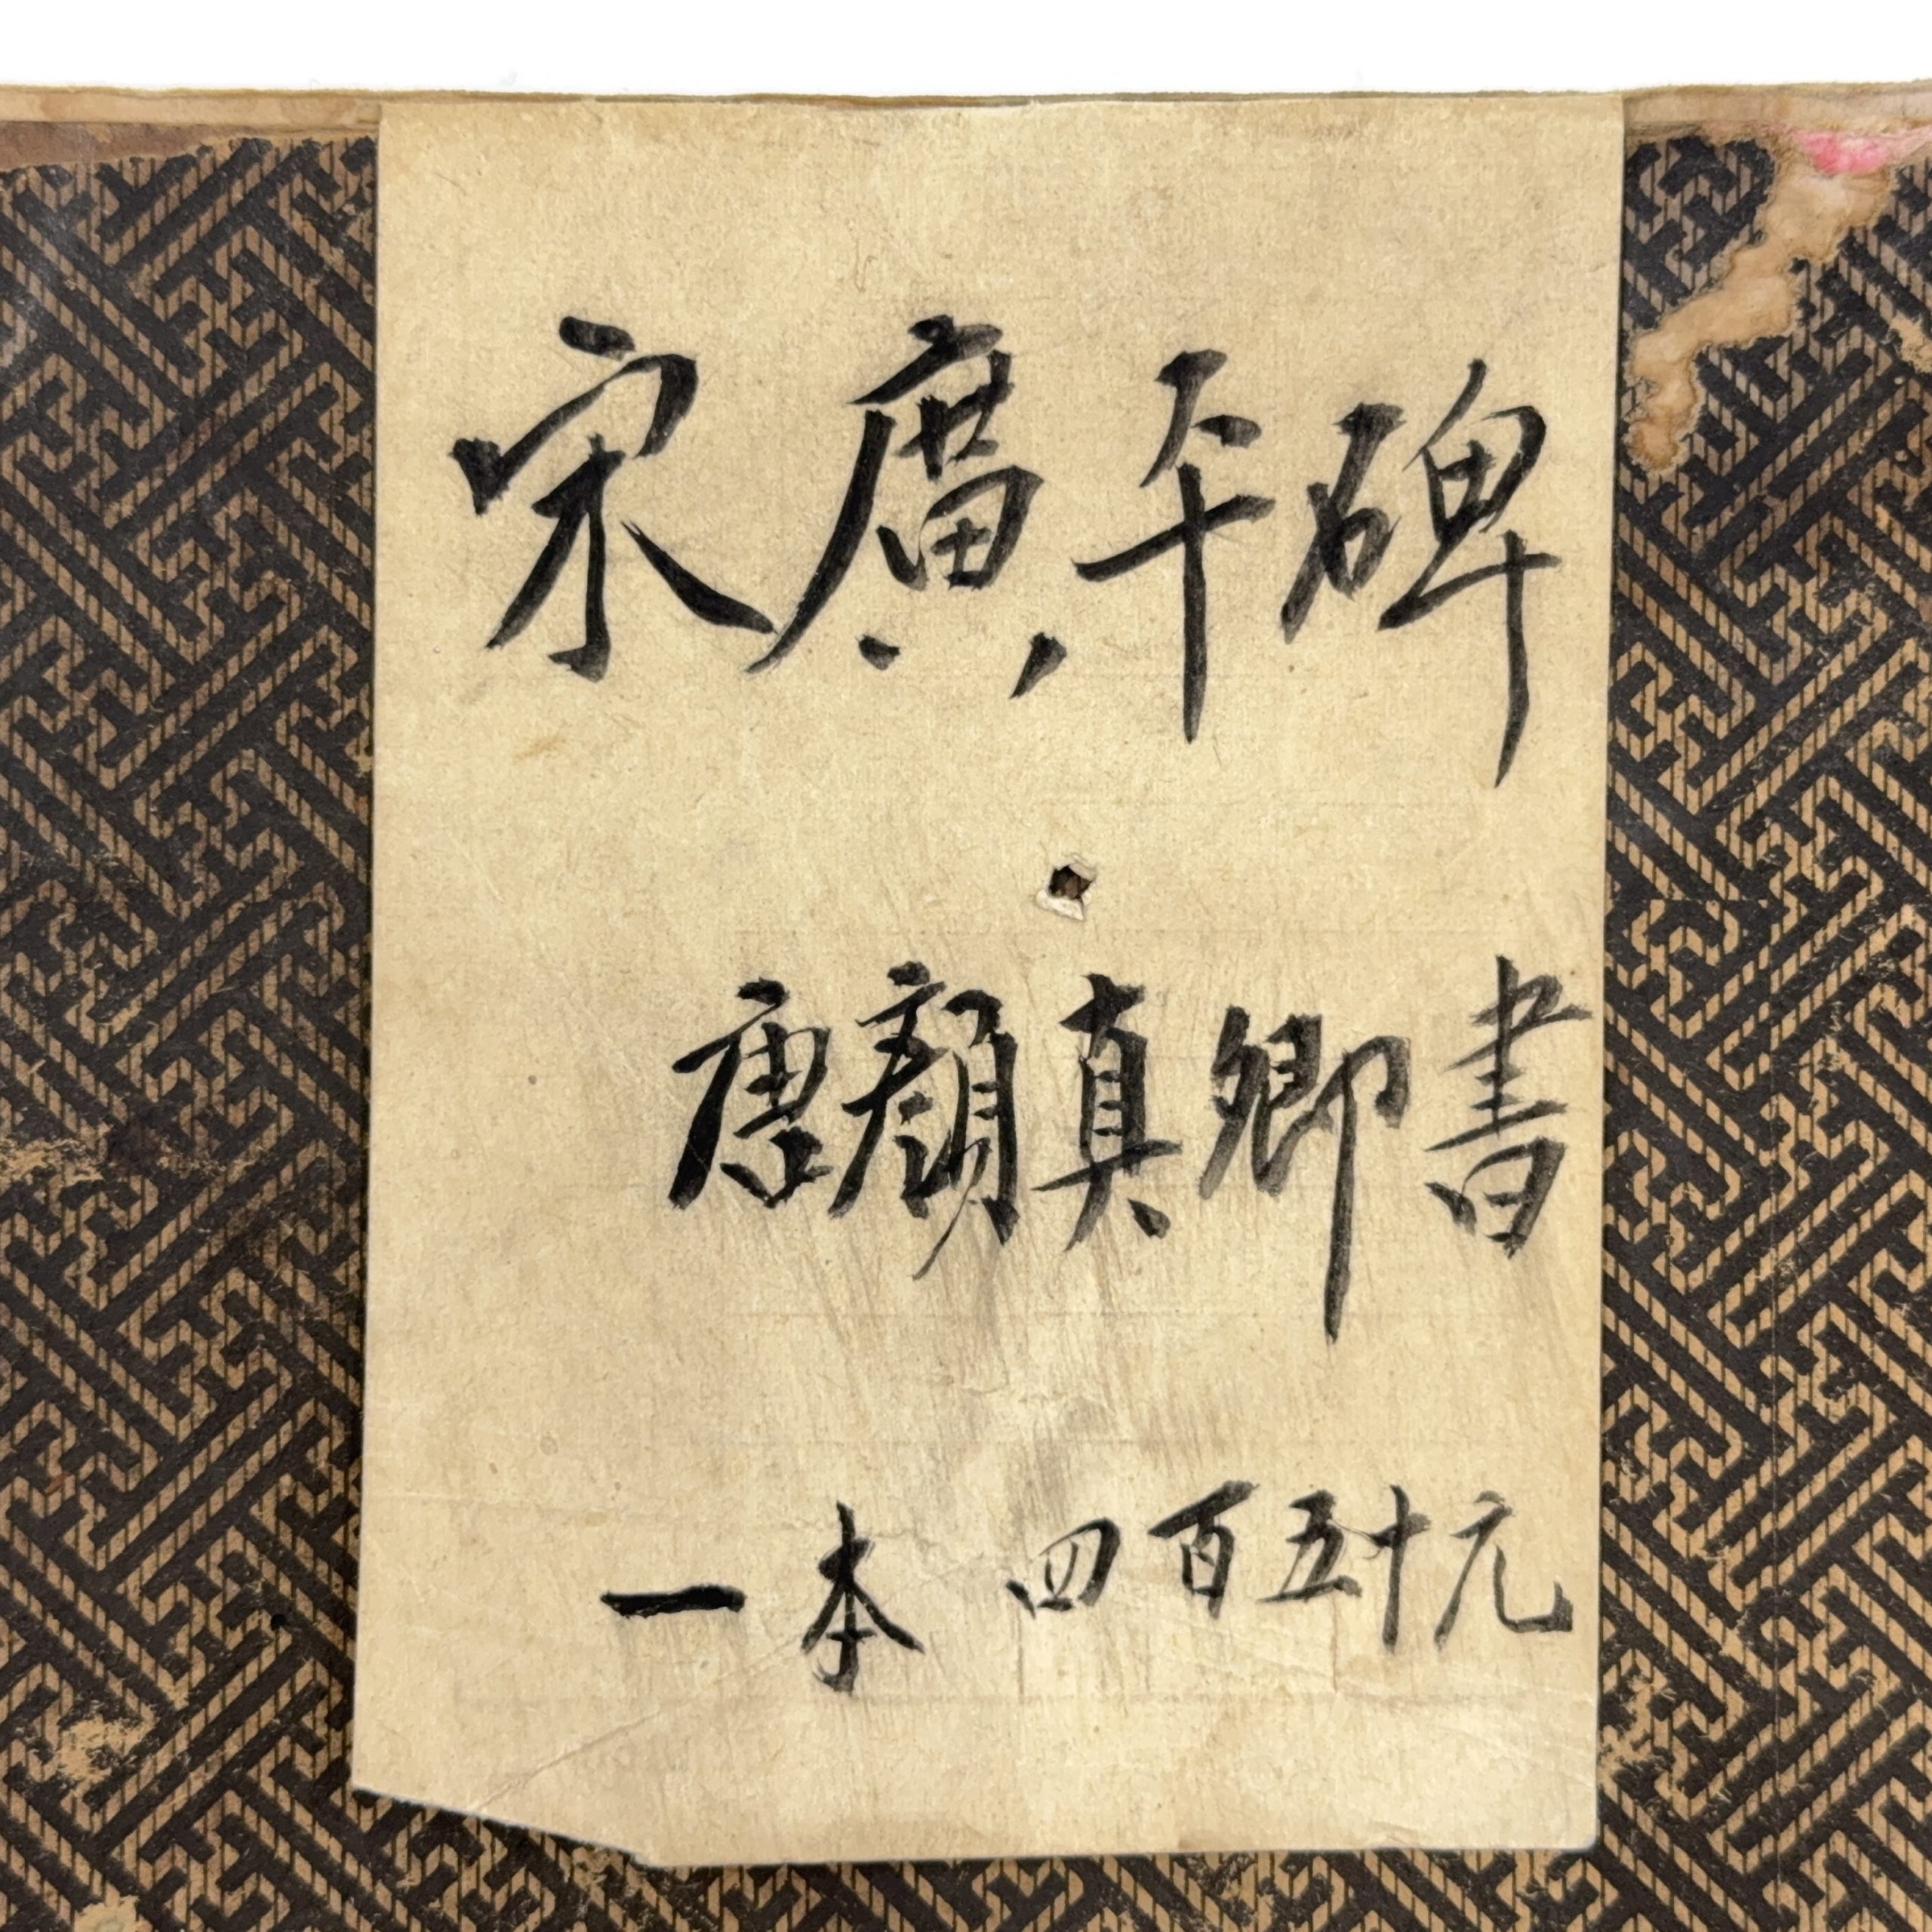 宋廣平碑
唐顏真卿書
一本 四百五十元